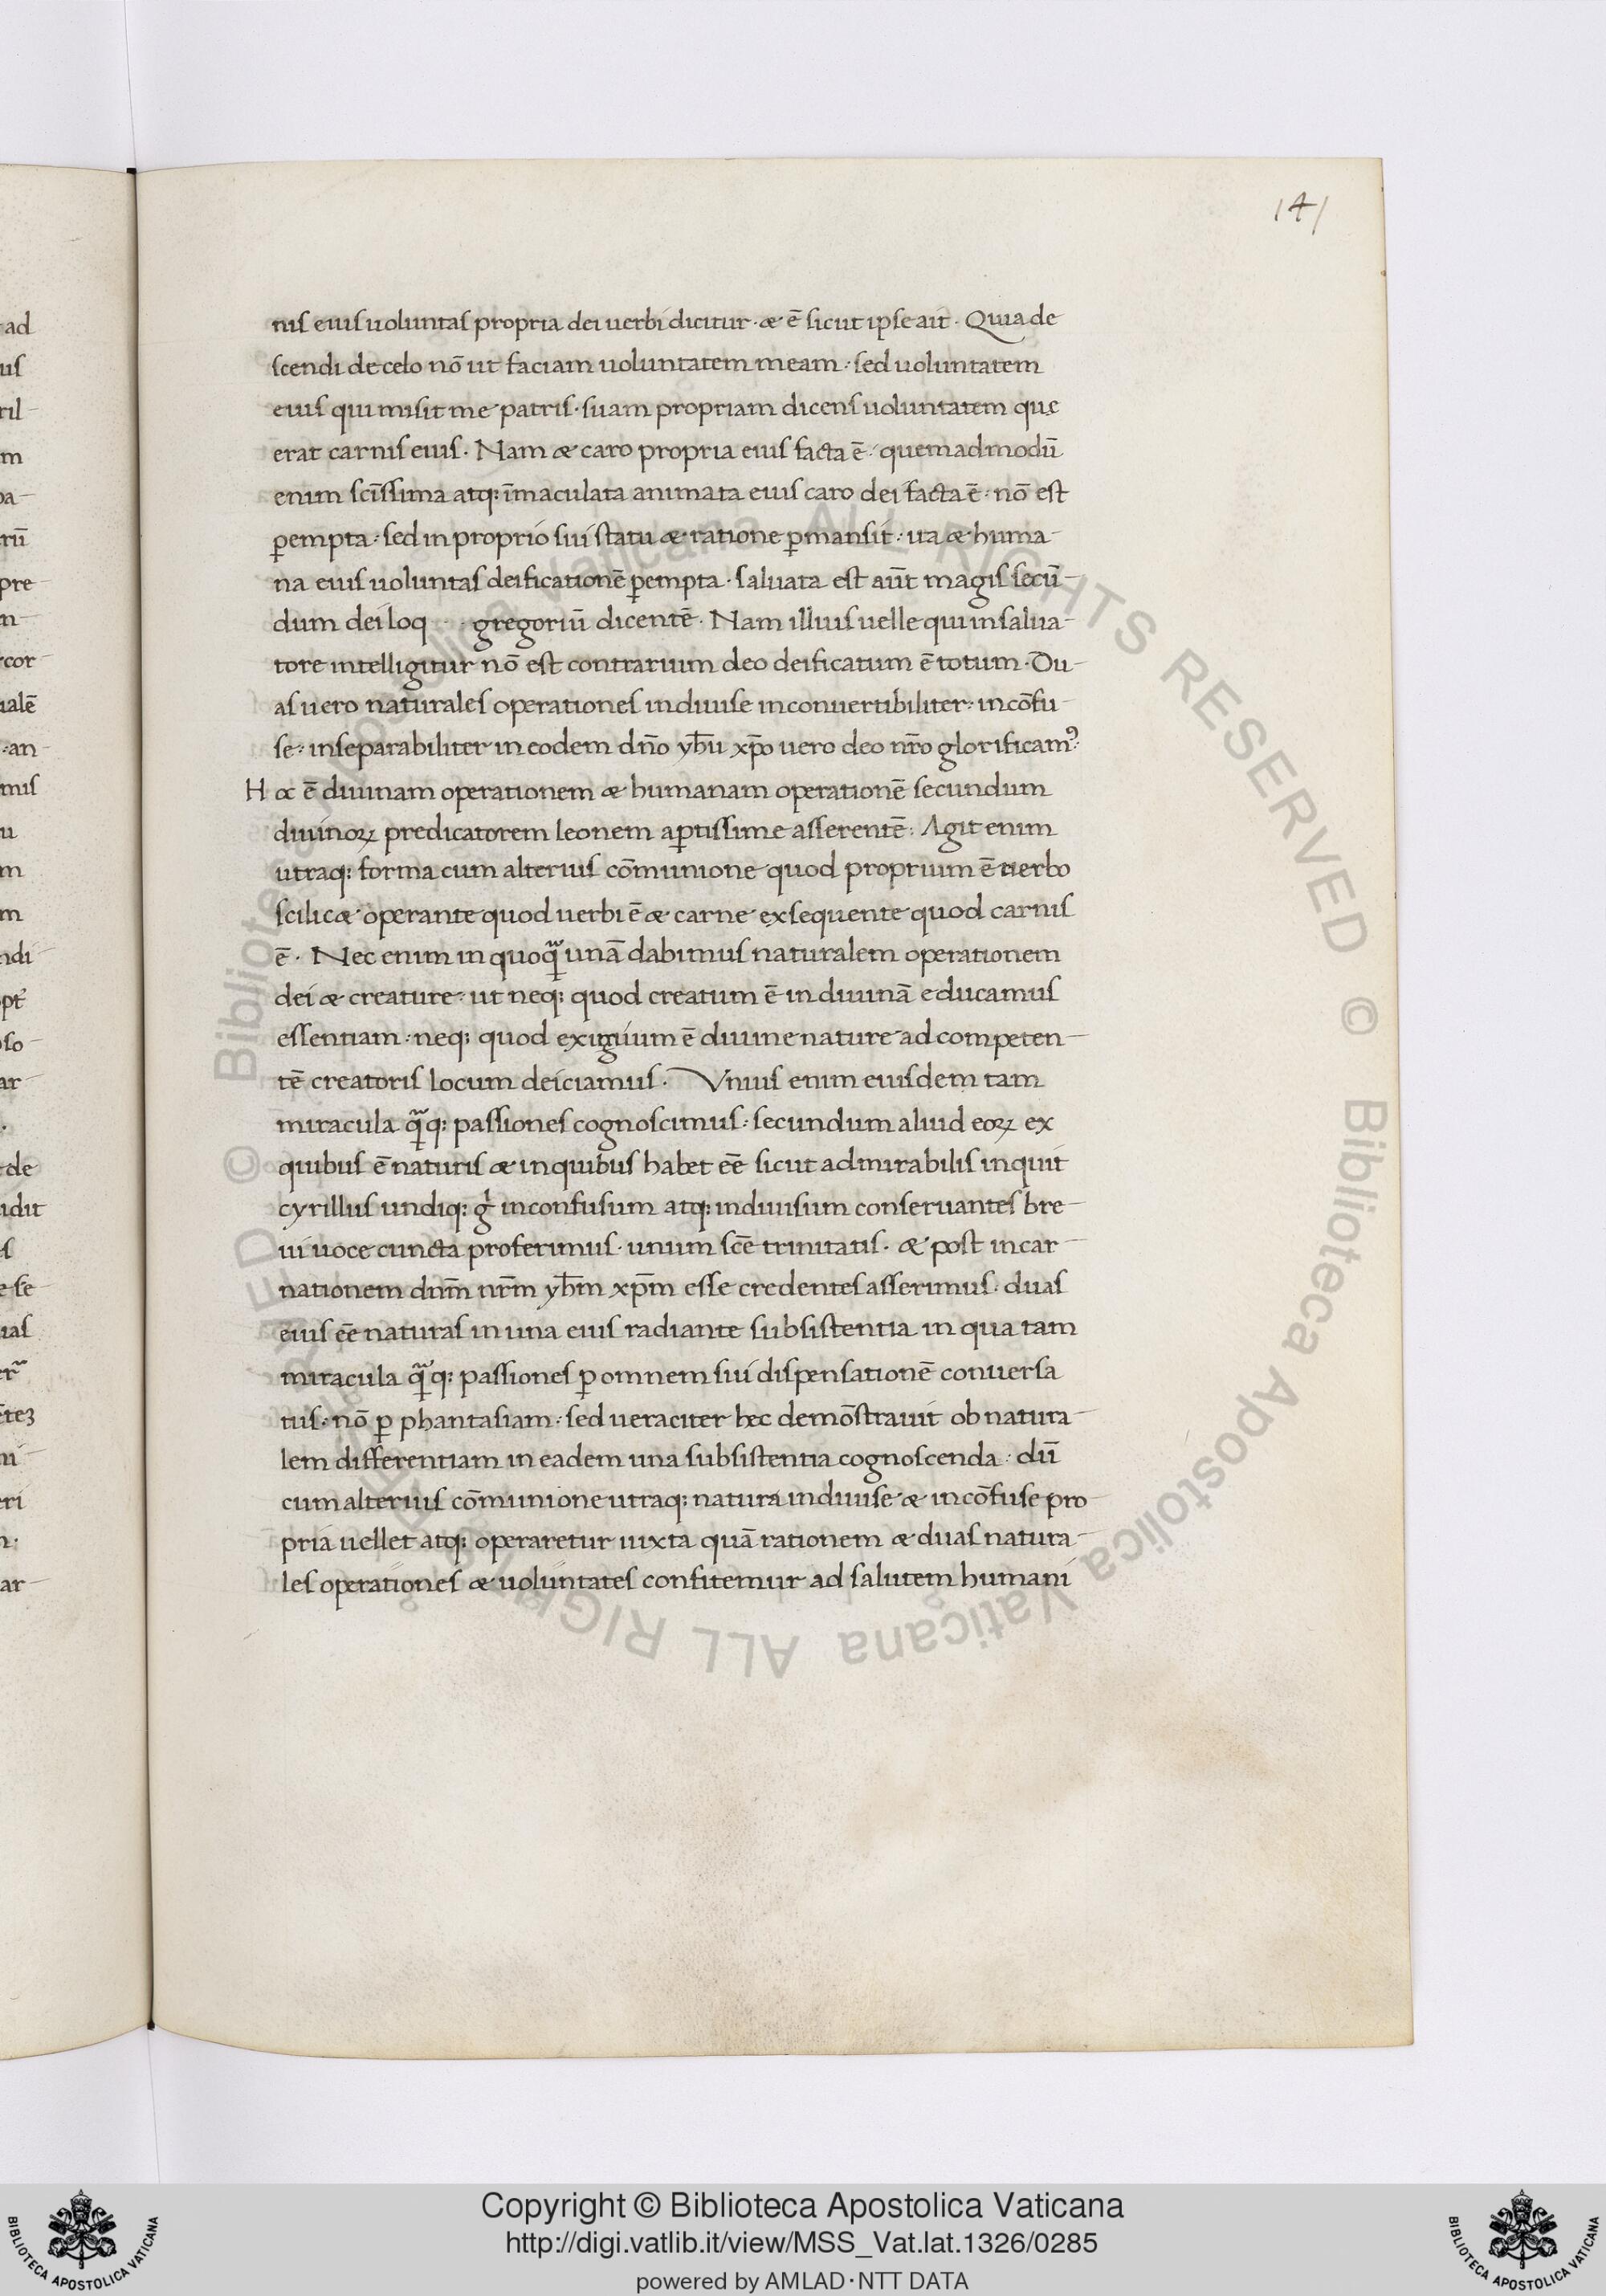 141
nis eius uoluntas propria dei uerbi dicitur · & ē sicut ipse ait · Quia de
scendi de celo nō ut faciam uoluntatem meam · sed uoluntatem
eius qui misit me patris · suam propriam dicens uoluntatem quę
erat carnis eius · Nam & caro propria eius facta ē · quemadmodū
enim scīssima atq; īmaculata animata eius caro dei facta ē · nō est
ꝑempta · sed in proprio sui statu & ratione ꝑmansit · ita & huma-
na eius uoluntas deificationē ꝑempta · saluata est aūt magis secū-
dum deiloq gregoriū dicentē · Nam illius uelle qui in salua-
tore intelligitur nō est contrarium deo deificatum ē totum · Du-
as uero naturales operationes indiuise inconuertibiliter · incōfu-
se · inseparabiliter in eodem dn̄o yh̄u xp̄o uero deo nr̄o glorificamꝰ ·
Hoc ē diuinam operationem & humanam operationē secundum
diuinoꝝ predicatorem leonem aꝑtissime asserentē · Agit enim
utraq; forma cum alterius cōmunione quod proprium ē uerbo
scilic& operante quod uerbi ē & carne exsequente quod carnis
ē · Nec enim in quoꝗ̃ unā dabimus naturalem operationem
dei & creature · ut neq; quod creatum ē in diuinā educamus
essentiam · neq; quod exiguum ē diuine nature ad competen-
tē creatoris locum deiciamus · Vnius enim eiusdem tam
miracula ꝗ̃q; passiones cognoscimus · secundum aliud eoꝝ ex
quibus ē naturis & in quibus habet eē sicut admirabilis inquit
cyrillus undiq; gͥ inconfusum atq; indiuisum conseruantes bre-
ui uoce cuncta proferimus · unum scē trinitatis · & post incar-
nationem dnm̄ nrm̄ yhm̄ xpm̄ esse credentes asserimus · duas
eius eē naturas in una eius radiante subsistentia in qua tam
miracula ꝗ̃q; passiones ꝑ omnem sui dispensationē conuersa
tus · nō ꝑ phantasiam · sed ueraciter hec demōstrauit ob natura-
lem differentiam in eadem una subsistentia cognoscenda · dū
cum alterius cōmunione utraq; natura indiuise & incōfuse pro
pria uellet atq; operaretur iuxta quā rationem & duas natura-
les operationes & uoluntates confitemur ad salutem humani
© Biblioteca Apostolica Vaticana ALL RIGHTS RESERVED © Biblioteca Apostolica Vaticana ALL RIGHTS RESERVED
Copyright © Biblioteca Apostolica Vaticana
http://digi.vatlib.it/view/MSS_Vat.lat.1326/0285
powered by AMLAD·NTT DATA
BIBLIOTECA APOSTOLICA VATICANA
BIBLIOTECA APOSTOLICA VATICANA